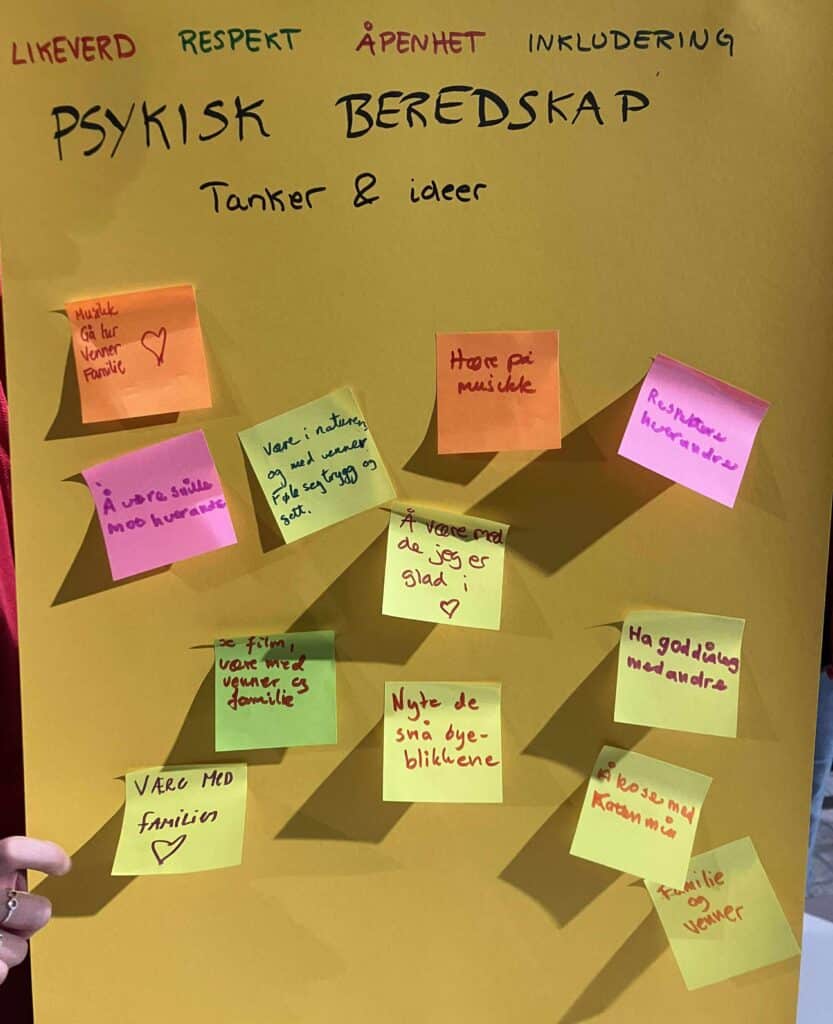 LIKEVERD RESPEKT ÅPENHET INKLUDERING
PSYKISK BEREDSKAP
Tanker & ideer
Musikk
Gå tur
Venner
Familie
Høre på
musikke
Respektere
hverandre
Å være snille
mot hverandre
Være i naturen
og med venner
Føle seg trygg og
sett.
Å være med
de jeg er
glad i
se film,
være med
venner og
familie
Nyte de
små øye-
blikkene
Ha god dialog
med andre
VÆRE MED
FAMILIEN
Å kose med
Katten min
Familie
og
venner